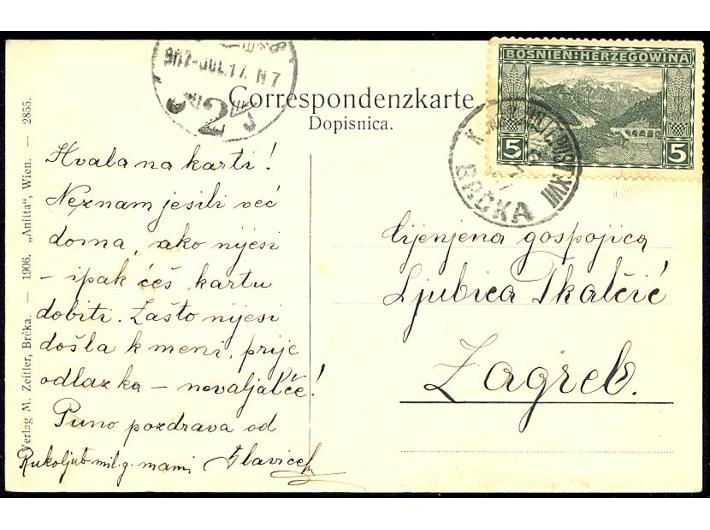 BOSNIEN-HERZEGOWINA
5 5
907-JUL.17. N7
2
BRČKA
Correspondenzkarte.
Dopisnica.
Hvala na karti!
Neznam jesili već
doma, ako nijesi
- ipak ćeš kartu
dobiti. Zašto nijesi
došla k meni, prije
odlazka - nevaljalče!
Puno pozdrava od
Rukoljub mil. g. mami
Cijenjena gospojica
Ljubica Tkalčić
Zagreb.
Verlag M. Zeitler, Brčka. — 1906. „Anitta", Wien. — 2855.